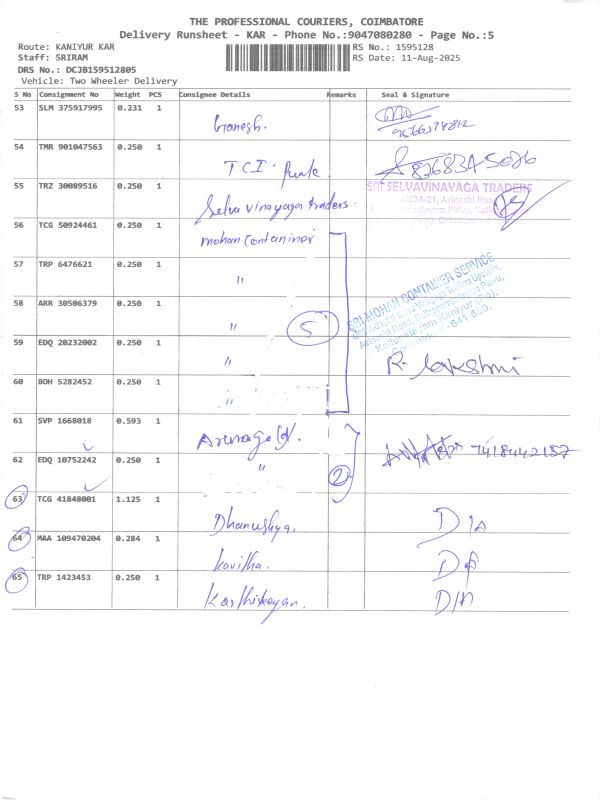 THE PROFESSIONAL COURIERS, COIMBATORE
Delivery Runsheet - KAR - Phone No.:9047080280 - Page No.:5
Route: KANIYUR KAR
RS No.: 1595128
Staff: SRIRAM
RS Date: 11-Aug-2025
DRS No.: DCJB159512805
Vehicle: Two Wheeler Delivery
S No Consignment No Weight PCS Consignee Details Remarks Seal & Signature
53 SLM 375917995 0.231 1
Ganesh.
54 TMR 901047563 0.250 1
TCI
55 TRZ 30089516 0.250 1
SRI SELVAVINAYAGA TRADERS
Selva Vinayaga traders.
56 TCG 50924461 0.250 1
Mohan Container
57 TRP 6476621 0.250 1
"
SRI MOHAN CONTAINER SERVICE
58 ARR 30506379 0.250 1
" 5
59 EDQ 20232002 0.250 1
" R. Lakshmi
60 BOH 5282452 0.250 1
"
61 SVP 1668018 0.593 1
7418442157
62 EDQ 10752242 0.250 1
" 2
63 TCG 41848001 1.125 1
Dhanushya.
64 MAA 109470204 0.284 1
Kavitha.
65 TRP 1423453 0.250 1
Karthikeyan.